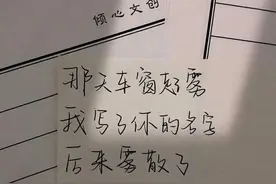 倾心文创
那天车窗起雾
我写了你的名字
后来雾散了